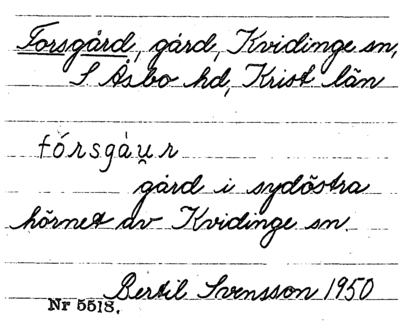 Forsgård, gård, Kvidinge sn,
S Åsbo hd, Krist län
fórsgàu̯r
gård i sydöstra
hörnet av Kvidinge sn.
Bertil Svensson 1950
Nr 5518.